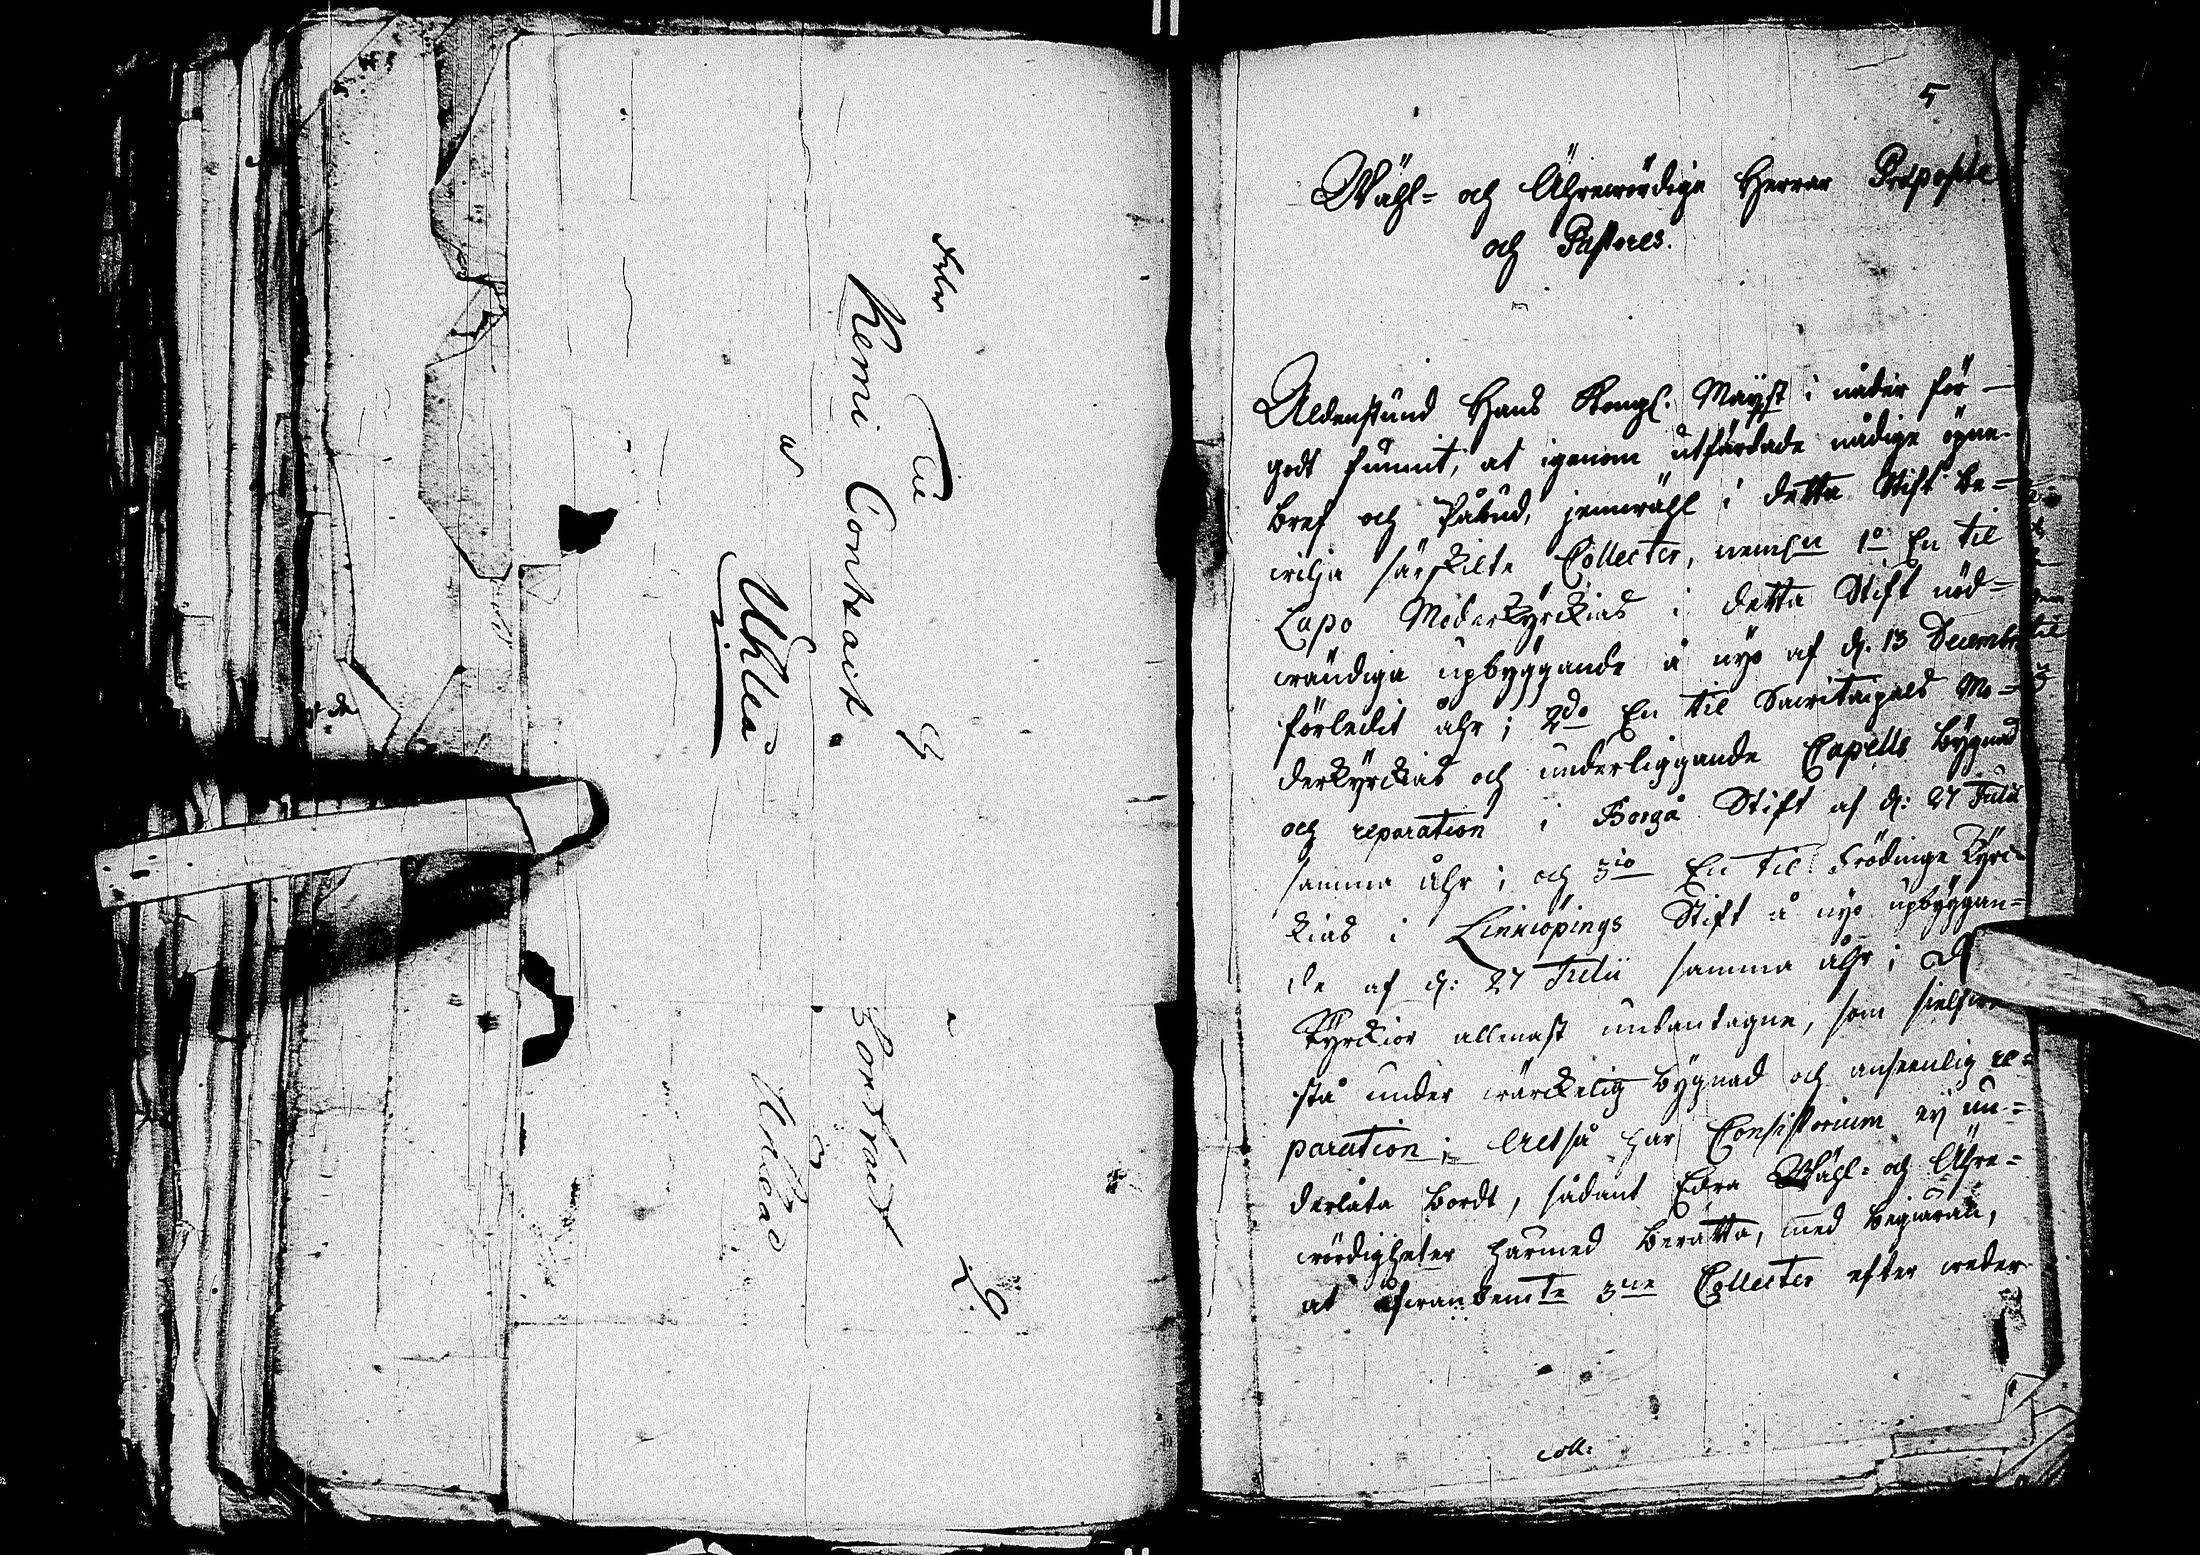 Til
Kemi Contract
å
Uhlea
5
Wähl- och Ährewördige Herrar Præpositi
och Pastores.
Aldenstund Hans Kongl. Mayst i nåder för-
godt funnit, at igenom utfärdade nådige öpne
bref och Påbud, jemwähl i detta Stift be-
wilja särskilte Collecter, nemln 1o En til
Lapo Moderkyrkias i detta Stift nöd-
wändiga upbyggande å nyo af d. 13 Decembr
förledit åhr; 2do En til Sawitaipals Mo-
derkyrckias och underliggande Capells bygnad
och reparation i Borgå Stift af d: 27 Julii
samma åhr; och 3io En til Frödinge Kyrc-
kias i Linkiöpings Stift å nyo upbyggan-
de af d: 27 Julii samma åhr; De
Kyrckior allenast undantagne, som sielfwe
stå under wärckelig bygnad och ansenlig re-
paration; Altså har Consistorium ey un-
derlåta bordt, sådant Edra Wähl- och Ähre-
wördigheter härmed berätta, med begiäran,
at ofwanbemte 3ne Collecter efter weder-
coll: